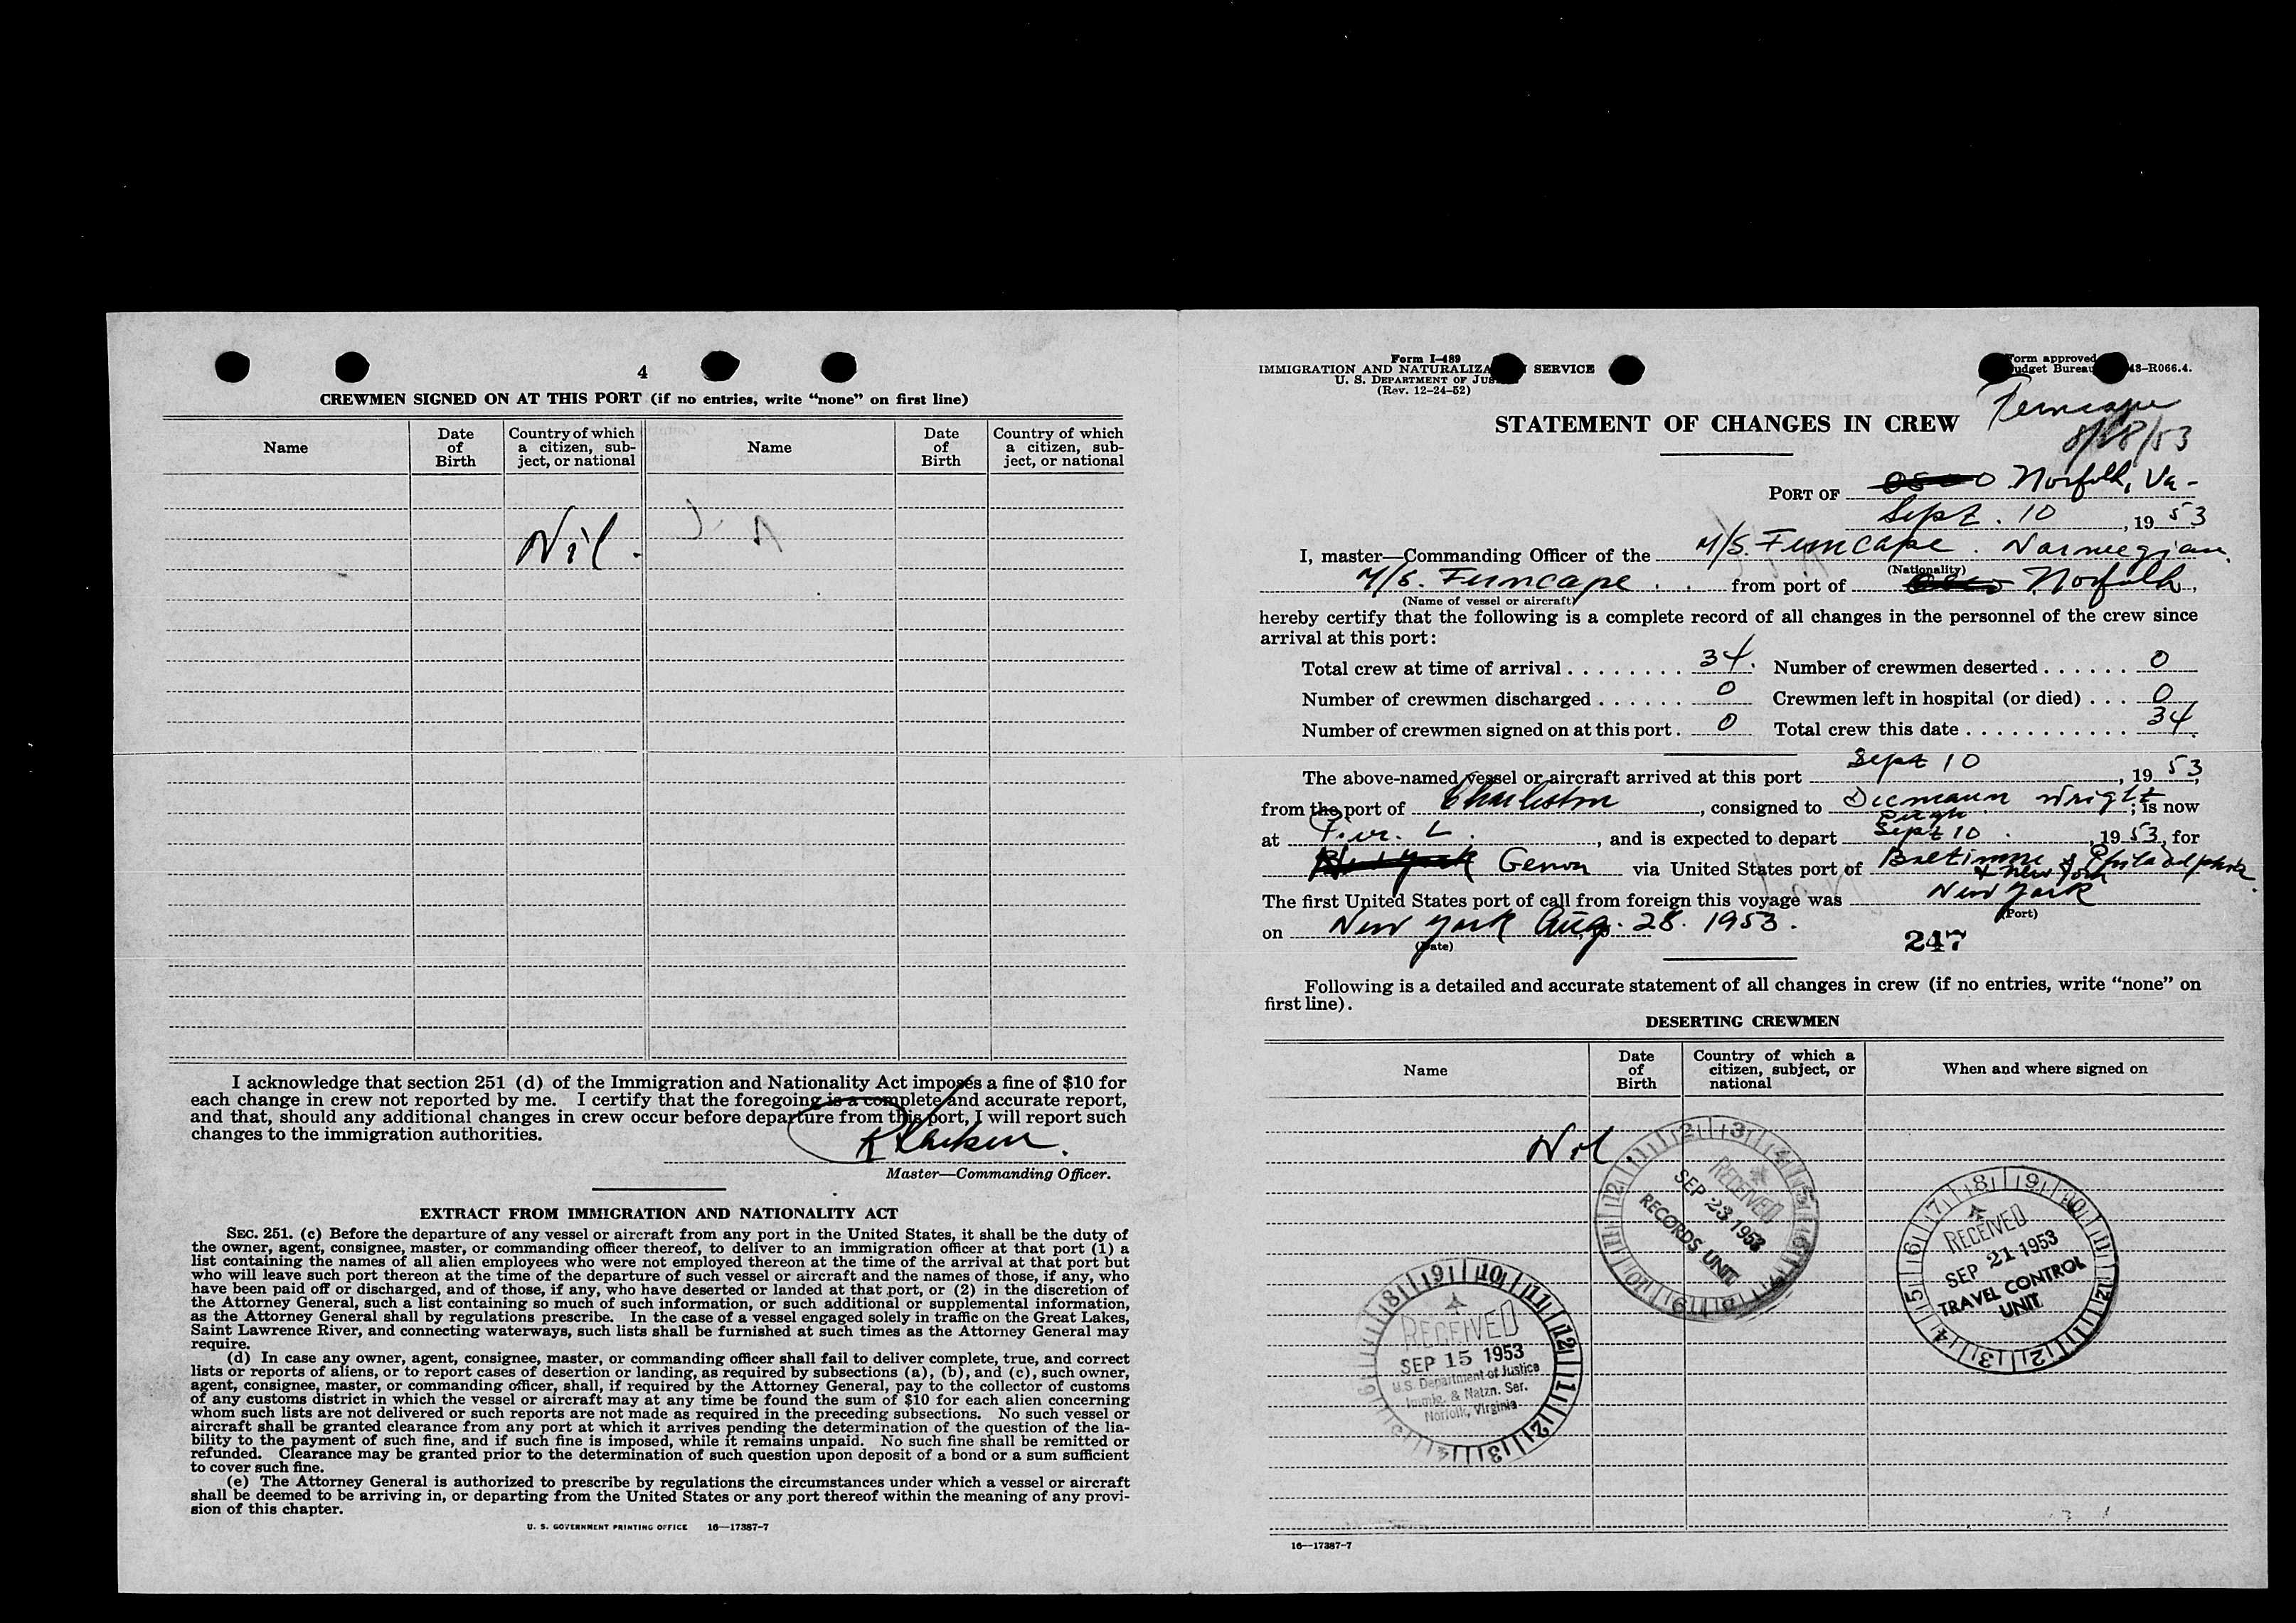 4
CREWMEN SIGNED ON AT THIS PORT (if no entries, write “none” on first line)
Name
Date of Birth
Country of which a citizen, sub-ject, or national
Name
Date of Birth
Country of which a citizen, sub-ject, or national
Nil.
I acknowledge that section 251 (d) of the Immigration and Nationality Act imposes a fine of $10 for
each change in crew not reported by me. I certify that the foregoing is a complete and accurate report,
and that, should any additional changes in crew occur before departure from this port, I will report such
changes to the immigration authorities.
Master—Commanding Officer.
EXTRACT FROM IMMIGRATION AND NATIONALITY ACT
SEC. 251. (c) Before the departure of any vessel or aircraft from any port in the United States, it shall be the duty of
the owner, agent, consignee, master, or commanding officer thereof, to deliver to an immigration officer at that port (1) a
list containing the names of all alien employees who were not employed thereon at the time of the arrival at that port but
who will leave such port thereon at the time of the departure of such vessel or aircraft and the names of those, if any, who
have been paid off or discharged, and of those, if any, who have deserted or landed at that port, or (2) in the discretion of
the Attorney General, such a list containing so much of such information, or such additional or supplemental information,
as the Attorney General shall by regulations prescribe. In the case of a vessel engaged solely in traffic on the Great Lakes,
Saint Lawrence River, and connecting waterways, such lists shall be furnished at such times as the Attorney General may
require.
(d) In case any owner, agent, consignee, master, or commanding officer shall fail to deliver complete, true, and correct
lists or reports of aliens, or to report cases of desertion or landing, as required by subsections (a), (b), and (c), such owner,
agent, consignee, master, or commanding officer, shall, if required by the Attorney General, pay to the collector of customs
of any customs district in which the vessel or aircraft may at any time be found the sum of $10 for each alien concerning
whom such lists are not delivered or such reports are not made as required in the preceding subsections. No such vessel or
aircraft shall be granted clearance from any port at which it arrives pending the determination of the question of the lia-
bility to the payment of such fine, and if such fine is imposed, while it remains unpaid. No such fine shall be remitted or
refunded. Clearance may be granted prior to the determination of such question upon deposit of a bond or a sum sufficient
to cover such fine.
(e) The Attorney General is authorized to prescribe by regulations the circumstances under which a vessel or aircraft
shall be deemed to be arriving in, or departing from the United States or any port thereof within the meaning of any provi-
sion of this chapter.
U. S. GOVERNMENT PRINTING OFFICE 16—17387-7
Form I-489
IMMIGRATION AND NATURALIZA SERVICE
U. S. DEPARTMENT OF JUS
(Rev. 12-24-52)
orm approved
udget Bureau 43-R066.4.
STATEMENT OF CHANGES IN CREW
Ferncape
8/28/53
PORT OF Norfolk, Va-
Sept. 10, 19 53
I, master—Commanding Officer of the M/S. Ferncape. Norwegian
(Nationality)
M/S. Ferncape . . from port of Norfolk,
(Name of vessel or aircraft)
hereby certify that the following is a complete record of all changes in the personnel of the crew since
arrival at this port:
Total crew at time of arrival . . . . . . . . 34. Number of crewmen deserted . . . . . . 0
Number of crewmen discharged . . . . . . 0 Crewmen left in hospital (or died) . . . 0
Number of crewmen signed on at this port . 0 Total crew this date . . . . . . . . . . . 34
The above-named vessel or aircraft arrived at this port Sept 10, 19 53,
from the port of Charleston, consigned to Wright; is now
at Pier. L., and is expected to depart Sept 10. 19 53, for
New York Genoa via United States port of Baltimore & Philadelphia
& New York
The first United States port of call from foreign this voyage was New York
(Port)
on New York Aug. 28. 1953.
(Date)
247
Following is a detailed and accurate statement of all changes in crew (if no entries, write “none” on
first line).
DESERTING CREWMEN
Name
Date of Birth
Country of which a citizen, subject, or national
When and where signed on
Nil
12 1 2 3 4 5 6 7 8 9 10 11
RECEIVED
SEP 23 1953
RECORDS UNIT
5 6 7 8 9 10 11 12 1 2 3 4
RECEIVED
SEP 21 1953
TRAVEL CONTROL
UNIT
8 9 10 11 12 1 2 3 4
RECEIVED
SEP 15 1953
U.S. Department of Justice
Immig. & Natzn. Ser.
Norfolk, Virginia
16—17387-7